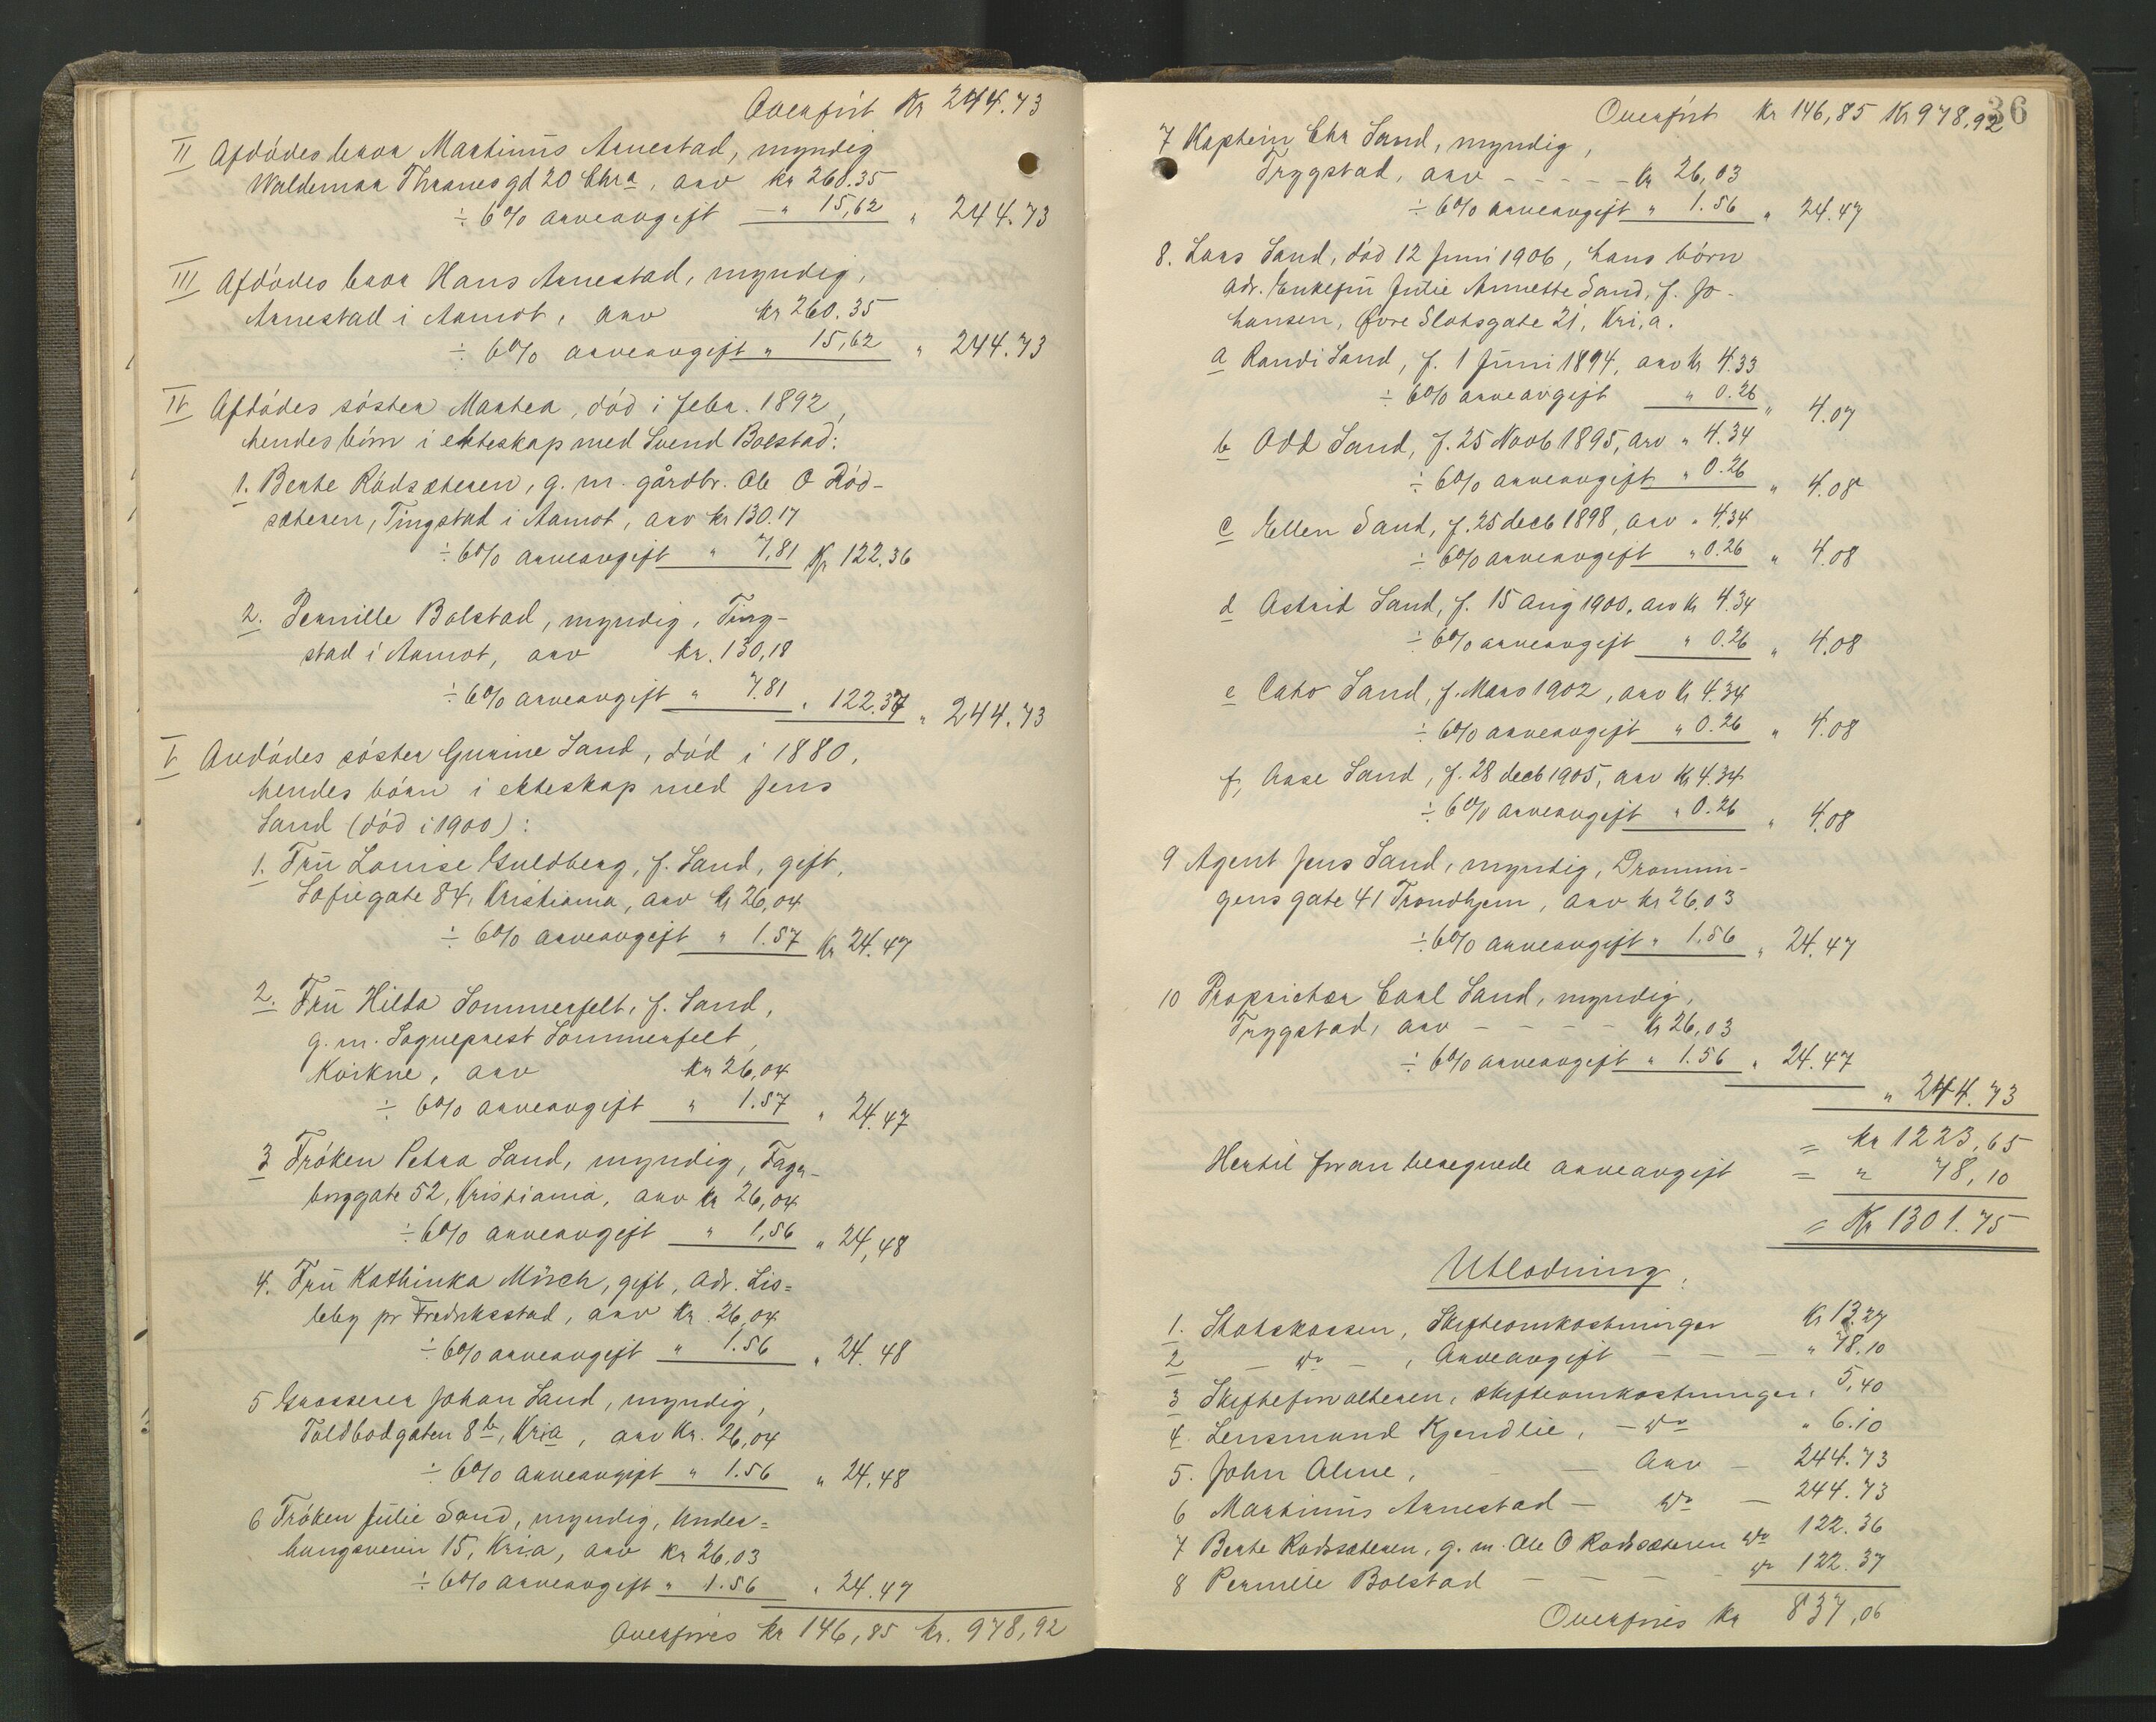 Overfört Kr 244.73
II Afdödes bror Martinus Arnestad, myndig
Waldemar Thranesgd 20 Chra, arv kr 260.35
÷ 6% arveavgift — " 15,62 " 244.73
III Afdödes bror Hans Arnestad, myndig,
Arnestad i Aamot, arv kr 260.35
÷ 6% arveavgift " 15,62 " 244.73
IV Afdödes söster Marthea, död i febr. 1892,
hendes börn i ekteskap med Svend Bolstad:
1. Berte Rödsæteren, g. m. gårdbr. Ole O Röd-
sæteren, Tingstad i Aamot, arv kr 130.17
÷ 6% arveavgift " 7,81 Kr 122.36
2. Pernille Bolstad, myndig, Ting-
stad i Aamot, arv kr. 130,18
÷ 6% arveavgift " 7.81 " 122.37 " 244.73
V Avdödes söster Gurine Sand, död i 1880,
hendes börn i ekteskap med Jens
Sand (död i 1900):
1. Fru Louise Guldberg, f. Sand, gift,
Sofiegate 84, Kristiania, arv kr 26,04
÷ 6% arveavgift " 1.57 Kr 24.47
2. Fru Hilda Sommerfelt, f. Sand,
g. m. Sogneprest Sommerfelt,
Kvikne, arv kr 26,04
÷ 6% arveavgift " 1.57 " 24.47
3 Fröken Petra Sand, myndig, Fager-
borggate 52, Kristiania, arv kr 26,04
÷ 6% arveavgift " 1,56 " 24,48
4. Fru Kathinka Mörch, gift, adr. Lis=
leby pr Fredriksstad, arv Kr. 26,04
÷ 6% arveavgift " 1.56 " 24.48
5 Grosserer Johan Sand, myndig,
Toldbodgaten 8b, Kria, arv Kr. 26,04
÷ 6% arveavgift " 1.56 " 24.48
6 Fröken Julie Sand, myndig, Under=
haugsveien 15, Kria, arv kr 26,03
÷ 6% arveavgift " 1.56 " 24.47
Overföres kr 146,85 kr. 978,92
36
Overfört kr 146,85 Kr 978,92
7 Kaptein Chr Sand, myndig,
Trygstad, arv - - - - - kr 26,03
÷ 6% arveavgift " 1.56 " 24.47
8. Lars Sand, död 12 Juni 1906, hans börn
adr. Enkefru Julie Annette Sand, f. Jo-
hansen, Øvre Slotsgate 21, Kri,a.
a Randi Sand, f. 1 Juni 1894, arv kr 4.33
÷ 6% arveavgift " 0.26 " 4.07
b Odd Sand, f. 25 Novb 1895, arv " 4.34
÷ 6% arveavgift " 0.26 " 4.08
c Ellen Sand, f. 25 decb 1898, arv " 4.34
÷ 6% arveavgift " 0.26 " 4.08
d Astrid Sand, f. 15 aug 1900, arv kr 4.34
÷ 6% arveavgift " 0.26 " 4.08
e Cato Sand, f. Mars 1902, arv kr 4.34
÷ 6% arveavgift " 0.26 " 4.08
f, Aase Sand, f. 28 decb 1905, arv kr 4.34
÷ 6% arveavgift " 0.26 " 4.08
9 Agent Jens Sand, myndig, Dronnin-
gens gate 41 Trondhjem, arv kr 26,03
÷ 6% arveavgift " 1,56 " 24.47
10 Proprietær Carl Sand, myndig,
Trygstad, arv - - - - kr 26,03
÷ 6% arveavgift " 1.56 " 24.47
" 244.73
= kr 1223,65
Hertil foran beregnede arveavgift = " 78,10
= Kr 1301.75
Utlodning.
1. Statskassen, Skifteomkostninger Kr 13.27
2 — do — , Arveavgift — — — " 78.10
3 Skifteforvalteren, skifteomkostninger, 5,40
4. Lensmand Kjendlie, — do " 6.10
5. John Alme, — Arv — 244.73
6 Martinus Arnestad — do — 244.73
7 Berte Rödsæteren, g. m. Ole O Rödsæteren do 122.36
8 Pernille Bolstad — — — do 122.37
Overföres kr 837,06